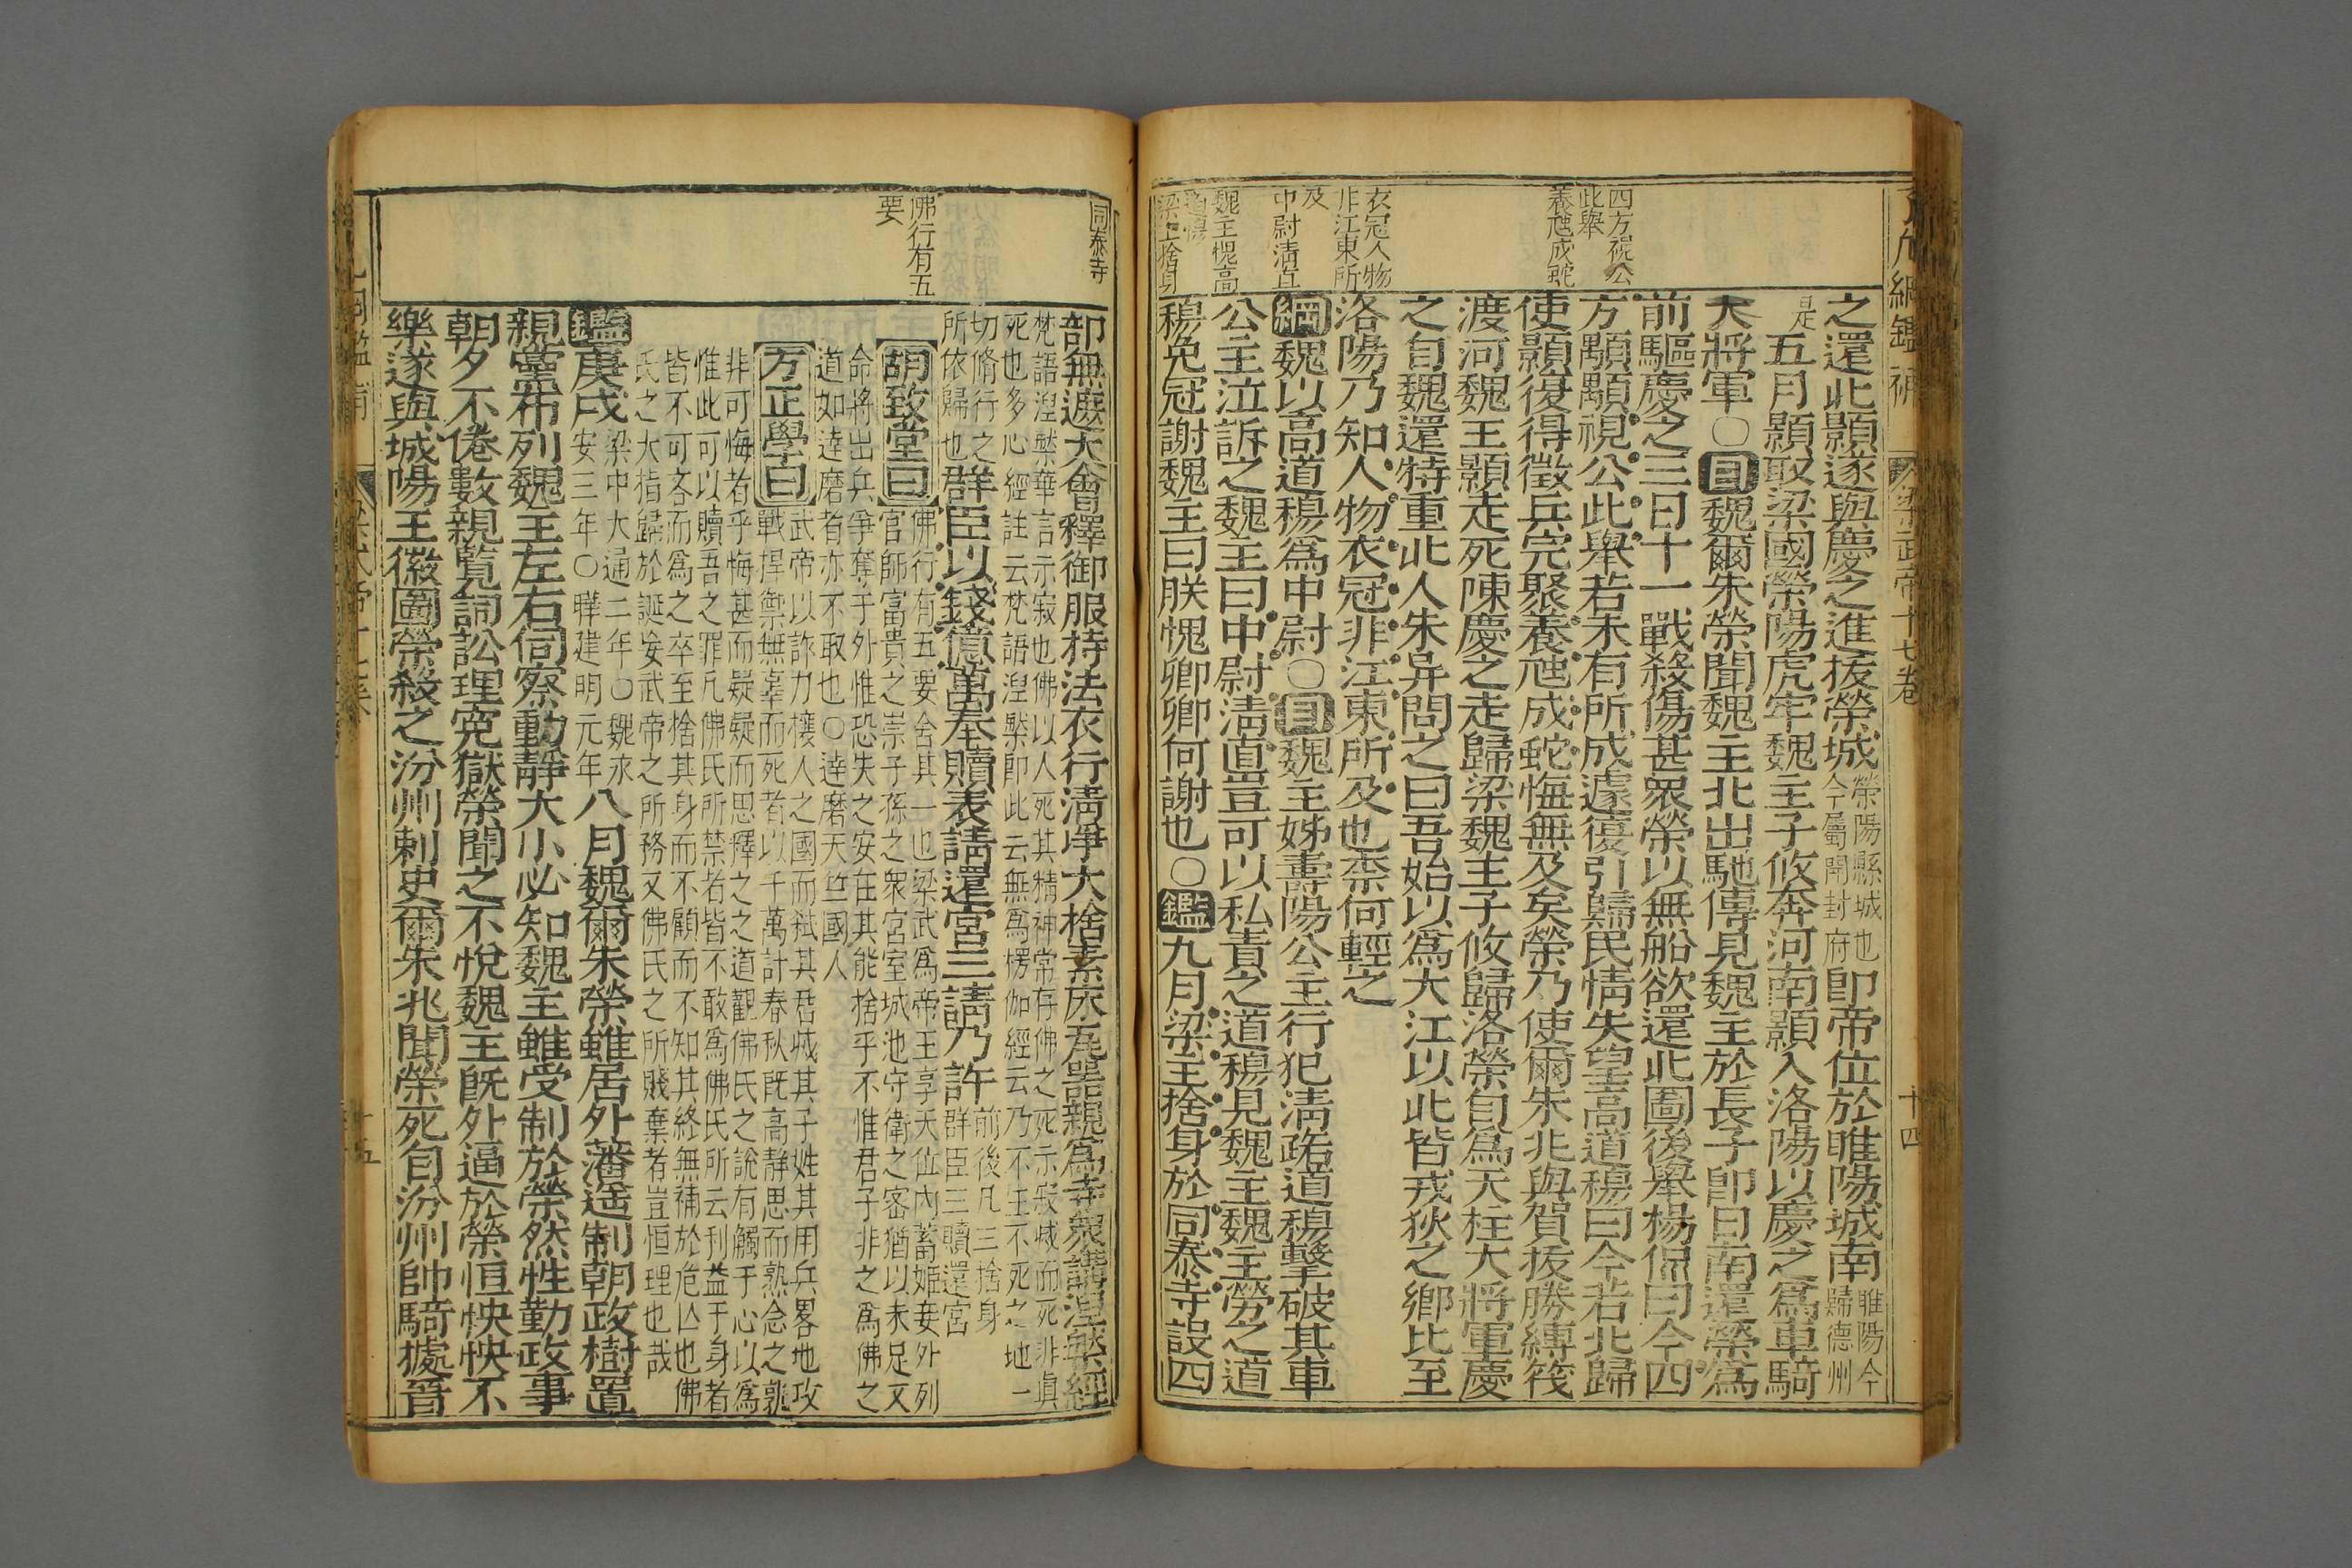 四方視公
此舉
養虺成蛇
衣冠人物
非江東所
及
中尉清直
魏主愧高
道穆
梁主捨身
之還北顥遂與慶之進拔榮城
榮陽縣城也
今屬開封府
卽帝位於睢陽城南
睢陽今
歸德州
是
五月顥取梁國榮陽虎牢魏主子攸奔河南顥入洛陽以慶之爲車騎
大將軍〇目魏爾朱榮聞魏主北出馳傳見魏主於長子卽日南還榮爲
前驅慶之三日十一戰殺傷甚衆榮以無船欲還北圖後舉楊侃曰今四
方顒顒視公此舉若未有所成遽復引歸民情失望高道穆曰今若北歸
使顥復得徵兵完聚養虺成蛇悔無及矣榮乃使爾朱兆與賀拔勝縛筏
渡河魏王顥走死陳慶之走歸梁魏主子攸歸洛榮自爲天柱大將軍慶
之自魏還特重北人朱异問之曰吾始以爲大江以北皆戎狄之鄉比至
洛陽乃知人物衣冠非江東所及也柰何輕之
綱魏以高道穆爲中尉〇目魏主姊壽陽公主行犯清路道穆擊破其車
公主泣訴之魏主曰中尉淸直豈可以私責之道穆見魏主魏主勞之道
穆免冠謝魏主曰朕愧卿卿何謝也〇鑑九月梁主捨身於同泰寺設四
同泰寺
佛行有五
要
部無遮大會釋御服持法衣行淸淨大捨素床瓦器親爲寺衆講涅槃經
梵語涅槃華言示寂也佛以人死其精神常存佛之死示寂滅而死非眞
死也多心經註云梵語涅槃卽此云無爲楞伽經云乃不生不死之地一
切脩行之
所依歸也
群臣以錢億萬奉贖表請還宮三請乃許
前後凡三捨身
群臣三贖還宮
胡致堂曰
佛行有五要舍其一也梁武爲帝王享天位內蓄姬妾外列
官師富貴之崇子孫之衆宮室城池守衛之密猶以未足又
命將出兵爭奪于外惟恐失之安在其能捨乎不惟君子非之爲佛之
道如達磨者亦不取也〇達磨天竺國人
方正學曰
武帝以詐力攘人之國而弒其君滅其子姓其用兵畧地攻
戰捍禦無辜而死者以千萬計春秋旣高靜思而熟念之孰
非可悔者乎悔甚而疑疑而思釋之之道觀佛氏之說有觸于心以爲
惟此可以贖吾之罪凡佛氏所禁者皆不敢爲佛氏所云利益于身者
皆不可吝而爲之卒至捨其身而不顧而不知其終無補於危亾也佛
氏之大指歸於誕妄武帝之所務又佛氏之所賤棄者豈恒理也哉
鑑庚戌
梁中大通二年〇魏永
安三年〇曄建明元年
八月魏爾朱榮雖居外藩遙制朝政樹置
親黨布列魏主左右伺察動靜大小必知魏主雖受制於榮然性勤政事
朝夕不倦數親覽詞訟理寃獄榮聞之不悅魏主旣外逼於榮恒怏怏不
樂遂與城陽王徽圖榮殺之汾州刺史爾朱兆聞榮死自汾州帥騎據晉